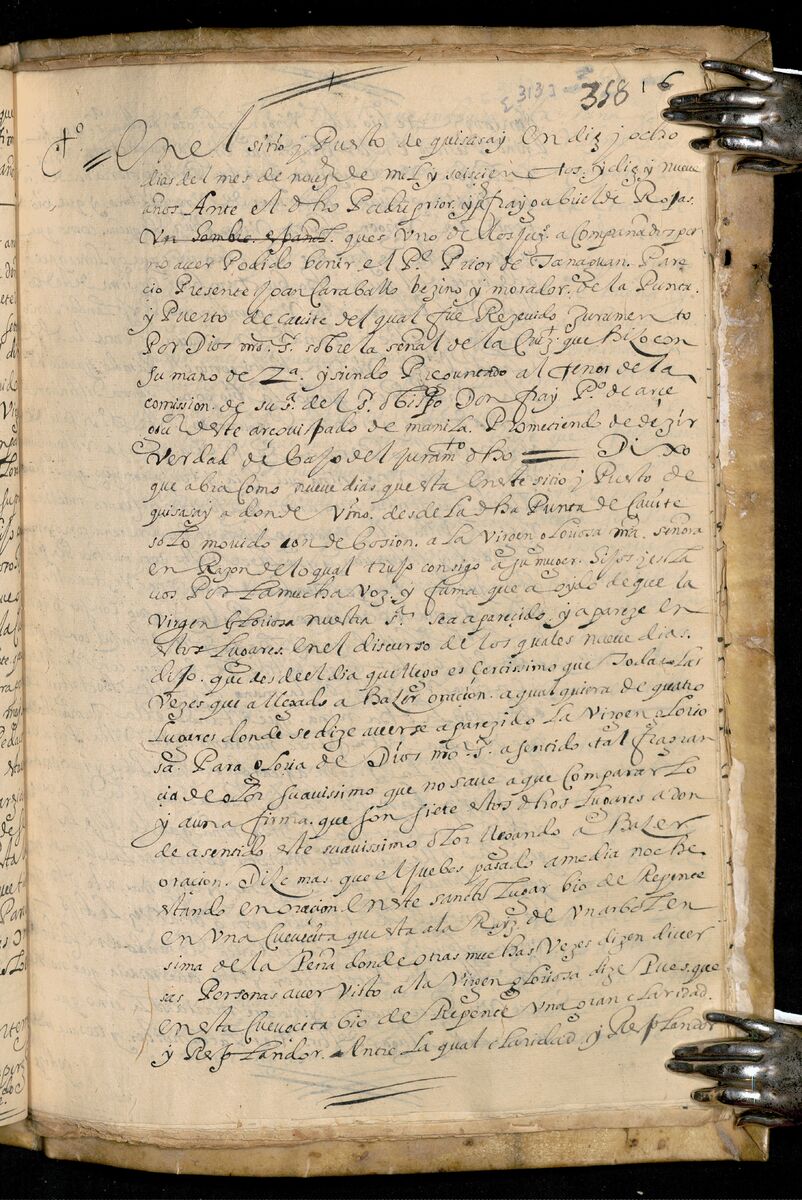 [313] 358 16
En el sitio y Puerto de guisasay En diz y ocho
dias del mes de nouē de mil y seiscientos. y diz y nueue
años Ante el dho Padre prior. y fray gabriel de Rojas.
Un hombre español. ques Uno de los acompañados por
no auer Podido benir el Pe. Prior de Tanaguan. Pare
cio Presente Joan Caraballo bezino y morador de la Punta
y Puerto de Cauite del qual fue Rezeuido Juramento
Por Dios nro. sr. sobre la señal de la Cruz. que hizo con
su mano de Ra. y siendo Preguntado al tenor de la
comission. de su sa. del sr. obispo Don fray Po. de arce
gour deste arçouispado de manila. Prometiendo de dezir
Verdad debajo del juramto dho Dixo
que abia como nueue dias que sta En este sitio y Puerto de
guisasay a donde Vino. desde La dha Punta de Cauite
solo mouido con debosion. a la Virgen gloriosa nra. señora
en Razon de lo qual trujo consigo a su muger. hijos y escla
uos Por La mucha Voz. y fama que a oydo de que la
Virgen gloriosa nuestra sra. se a aparecido, y apareze En
estos Lugares. En el discurso de los quales nueue dias.
dijo. que desde el dia que llego es certissimo que Todas Las
Vezes que a llegado a hazer oracion. a qualquiera de quatro
Lugares donde se dize auerse aparezido La Virgen glorio
sa. Para gloria de Dios nro. sr. a sentido tal fragran
cia de olor suauissimo que no saue a que comparar Lo
y aun a firma. que son siete estos dhos Lugares a don
de a sentido este suauissimo olor llegando a hazer
oracion. Dize mas. que el juebes pasado a media noche
estando en oracion. En este sancto lugar bio de Repente
en Una Cueuecita que sta a la Rayz de Un arbol En
sima de la Peña donde otras muchas Vezes dizen diuer
sas Personas auer Visto a la Virgen gloriossa dize Pues. que
en esta Cueuecita bio de Repente Una gran claridad.
y Resplandor. Entre La qual claridad y Resplandor